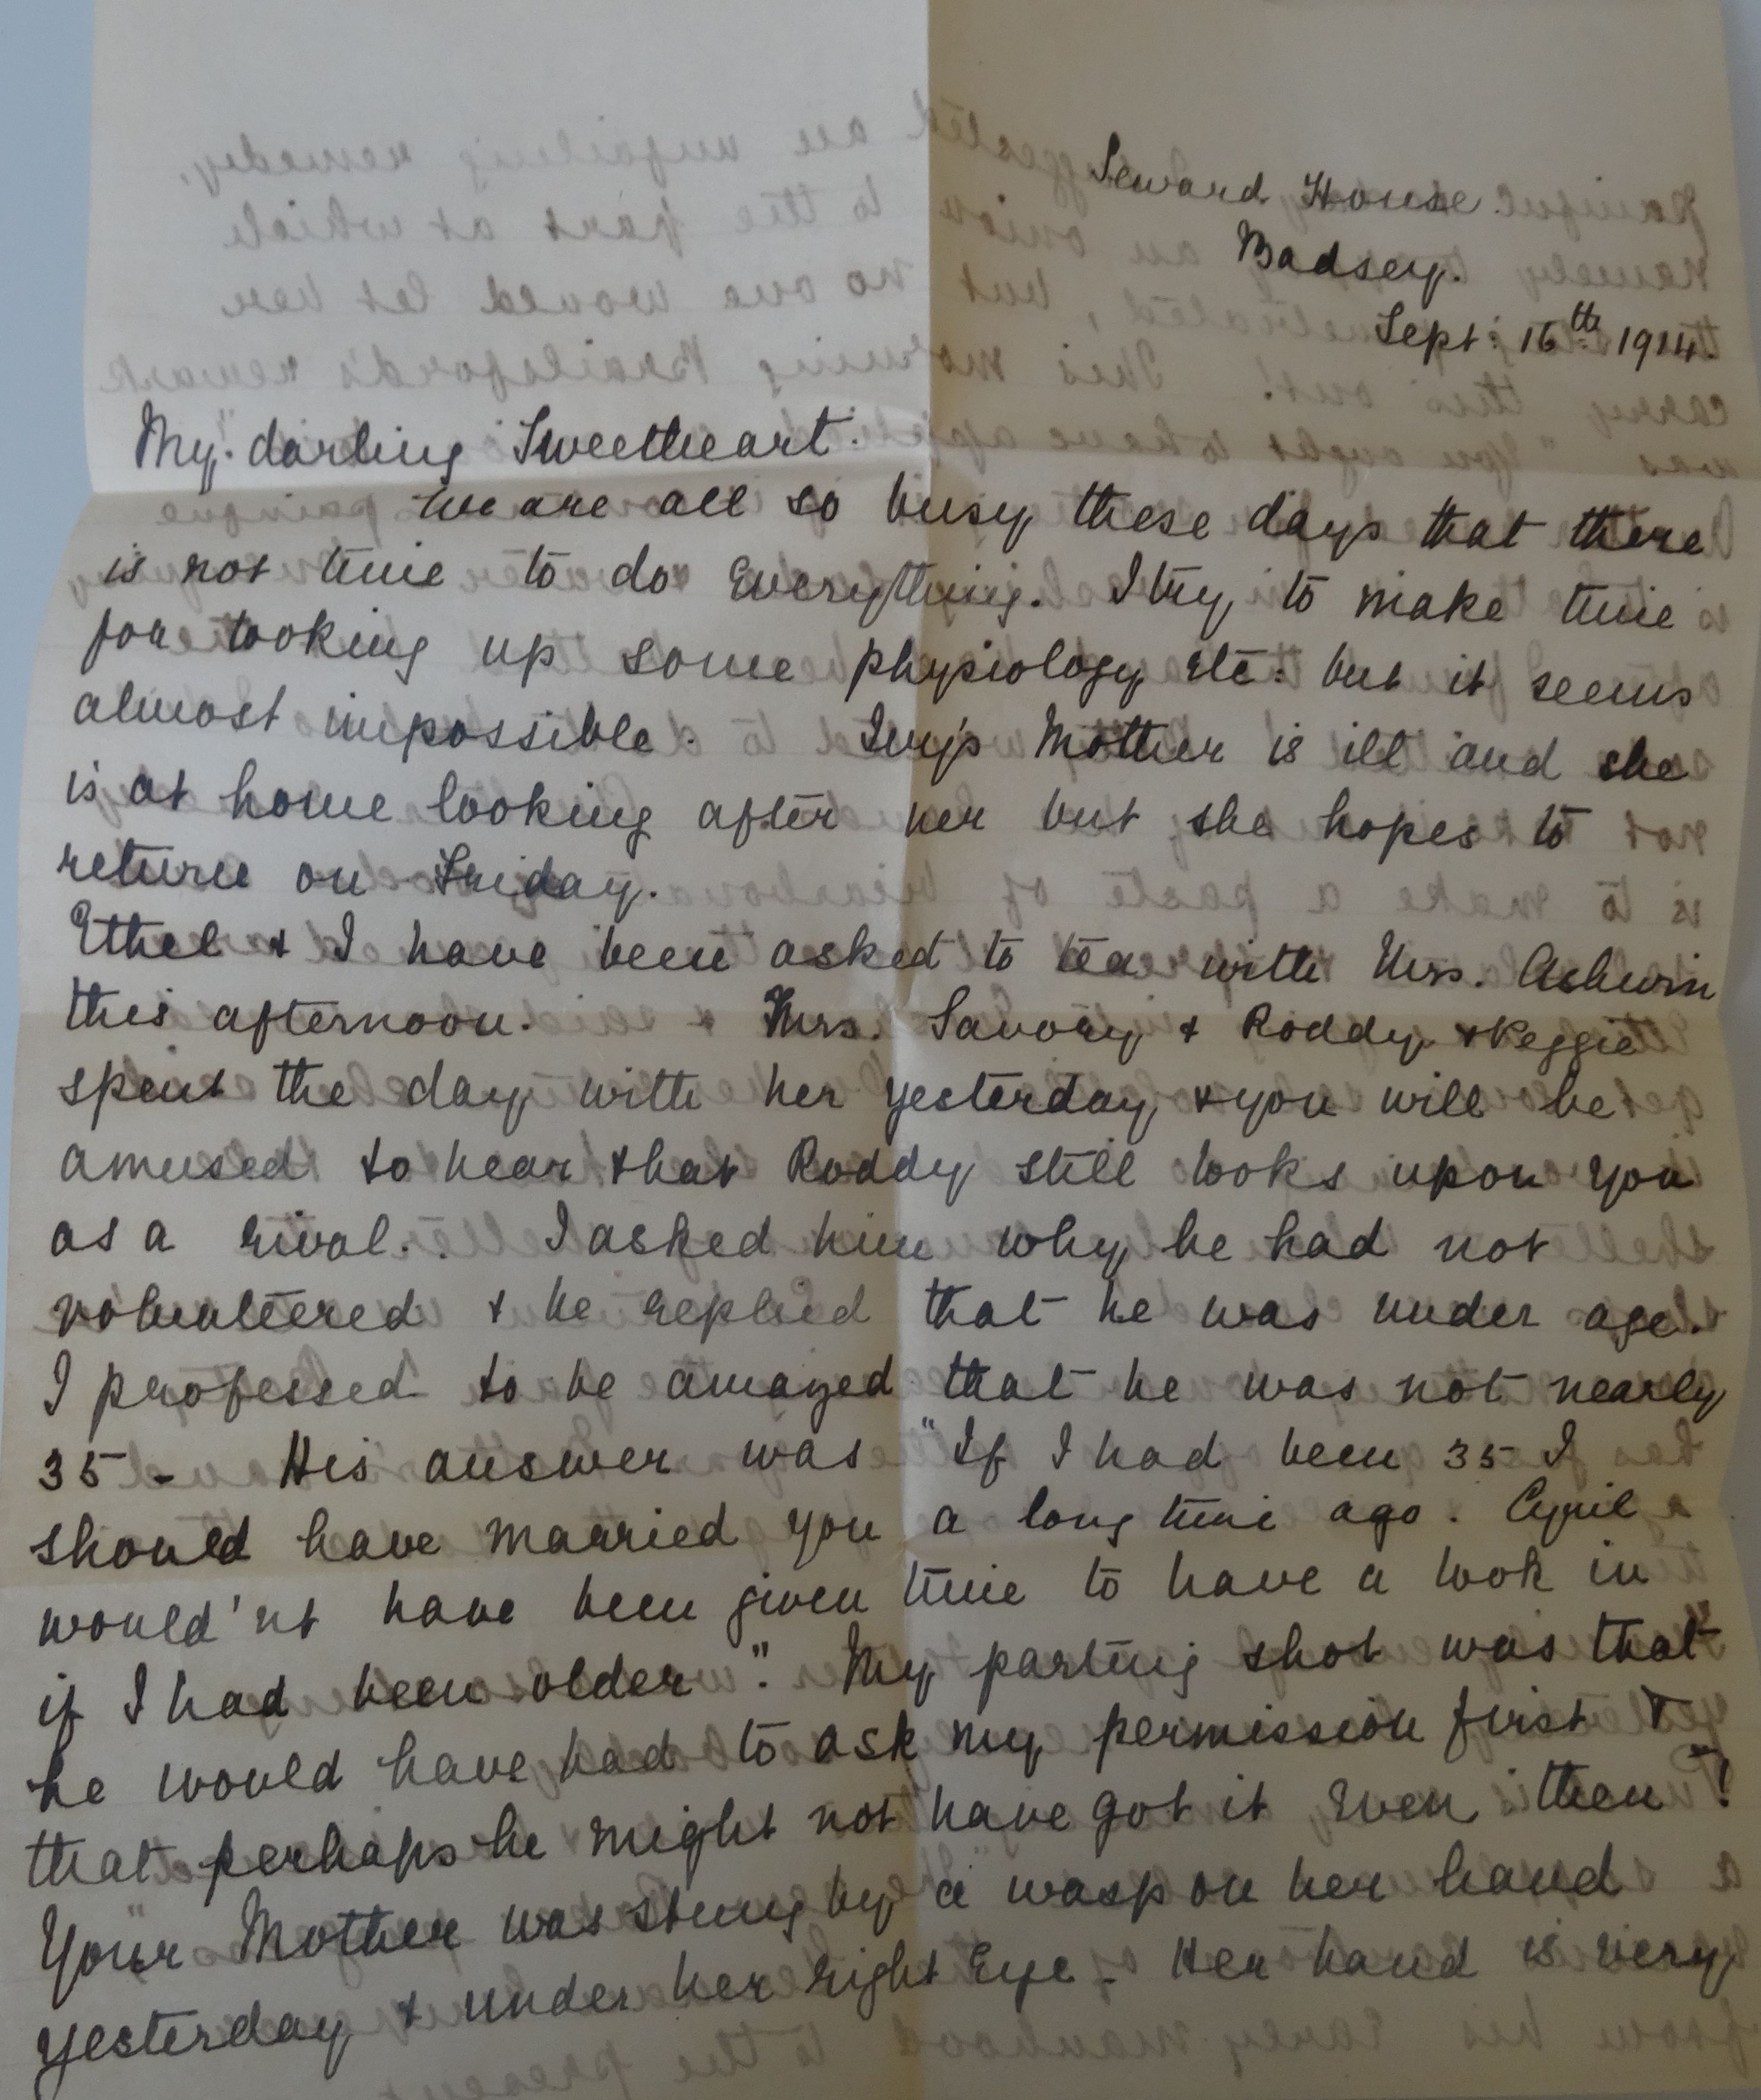 Seward House.
Badsey.
Sept: 16th 1914.
My darling Sweetheart.
We are all so busy these days that there
is not time to do everything. I try to make time
for looking up some physiology etc: but it seems
almost impossible. Ivy's Mother is ill and she
is at home looking after her but she hopes to
return on Friday.
Ethel & I have been asked to tea with Mrs. Ashwin
this afternoon. Mrs. Savory & Roddy & Reggie
spent the day with her yesterday & you will be
amused to hear that Roddy still looks upon you
as a rival. I asked him why he had not
volunteered & he replied that he was under age.
I professed to be amazed that he was not nearly
35 - His answer was "If I had been 35 I
should have married you a long time ago. Cyril
would'nt have been given time to have a look in
if I had been older". My parting shot was that "
he would have had to ask my permission first &
that perhaps he might not have got it even then"!
Your Mother was stung by a wasp on her hand
yesterday & under her right eye - Her hand is very